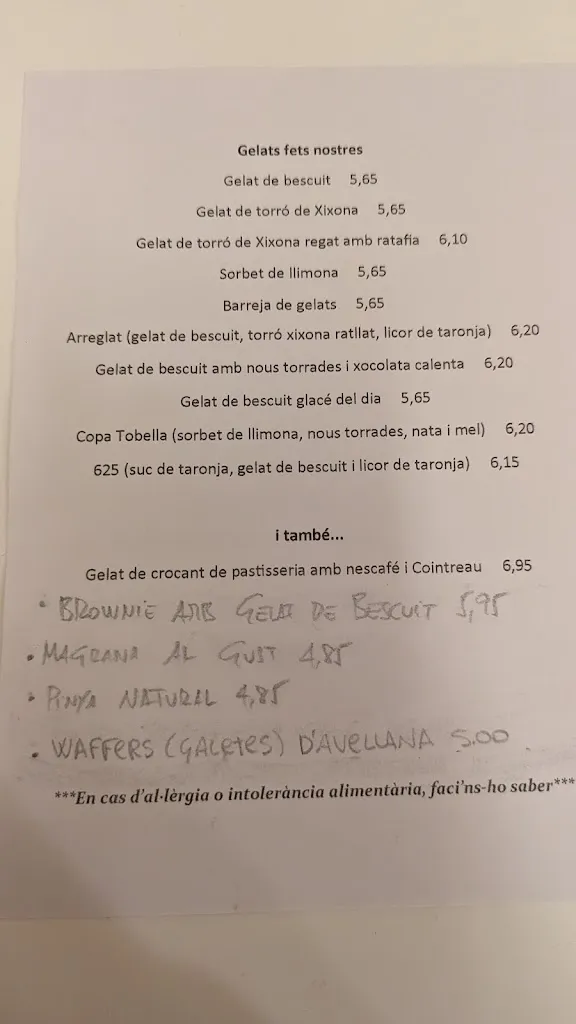 Gelats fets nostres
Gelat de bescuit 5,65
Gelat de torró de Xixona 5,65
Gelat de torró de Xixona regat amb ratafia 6,10
Sorbet de llimona 5,65
Barreja de gelats 5,65
Arreglat (gelat de bescuit, torró xixona ratllat, licor de taronja) 6,20
Gelat de bescuit amb nous torrades i xocolata calenta 6,20
Gelat de bescuit glacé del dia 5,65
Copa Tobella (sorbet de llimona, nous torrades, nata i mel) 6,20
625 (suc de taronja, gelat de bescuit i licor de taronja) 6,15
i també...
Gelat de crocant de pastisseria amb nescafé i Cointreau 6,95
• BROWNIE AMB GELAT DE BESCUIT 5,95
• MAGRANA AL GUST 4,85
• PINYA NATURAL 4,85
• WAFFERS (GALETES) D'AVELLANA 5.00
***En cas d'al·lèrgia o intolerància alimentària, faci'ns-ho saber***